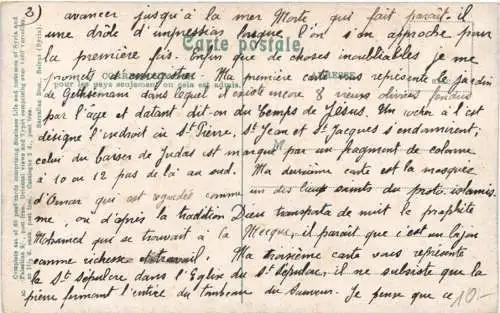 3)
avancer jusqu'à la mer Morte qui fait paraît-il
une drôle d'impression lorsque l'on s'en approche pour
la première fois. Enfin que de choses inoubliables je me
promets Ma première carte vous représente le Jardin
de Gethsemani dans lequel il existe encore 8 vieux oliviers
par l'âge et datant dit-on du temps de Jésus. Un rocher à l'est
désigne l'endroit où St Pierre, St Jean et St Jacques s'endormirent;
celui du baiser de Judas est marqué par un fragment de colonne
à 10 ou 12 pas de là au sud. Ma deuxième carte est la mosquée
d'Omar qui est regardée comme un des lieux saints
où d'après la tradition Dieu transporta de nuit le prophète
Mohamed qui se trouvait à la Mecque, il paraît que c'est un
comme richesse et travail. Ma troisième carte vous représente
le St Sépulcre dans l'Eglise du St Sépulcre, il ne subsiste que la
pierre fermant l'entrée du tombeau du Sauveur. Je pense que ce
10-
Carte postale
pour les pays seulement où cela est admis.
ADRESSE